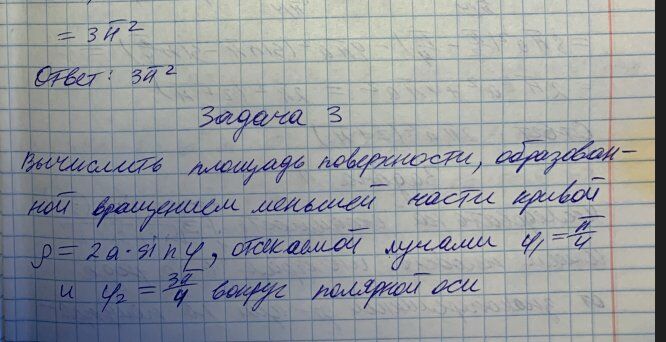 = 3π²
Ответ: 3π²
Задача 3
Вычислить площадь поверхности, образован-
ной вращением меньшей части кривой
ρ = 2a·sinφ, отсекаемой лучами φ₁ = π/4
и φ₂ = 3π/4 вокруг полярной оси